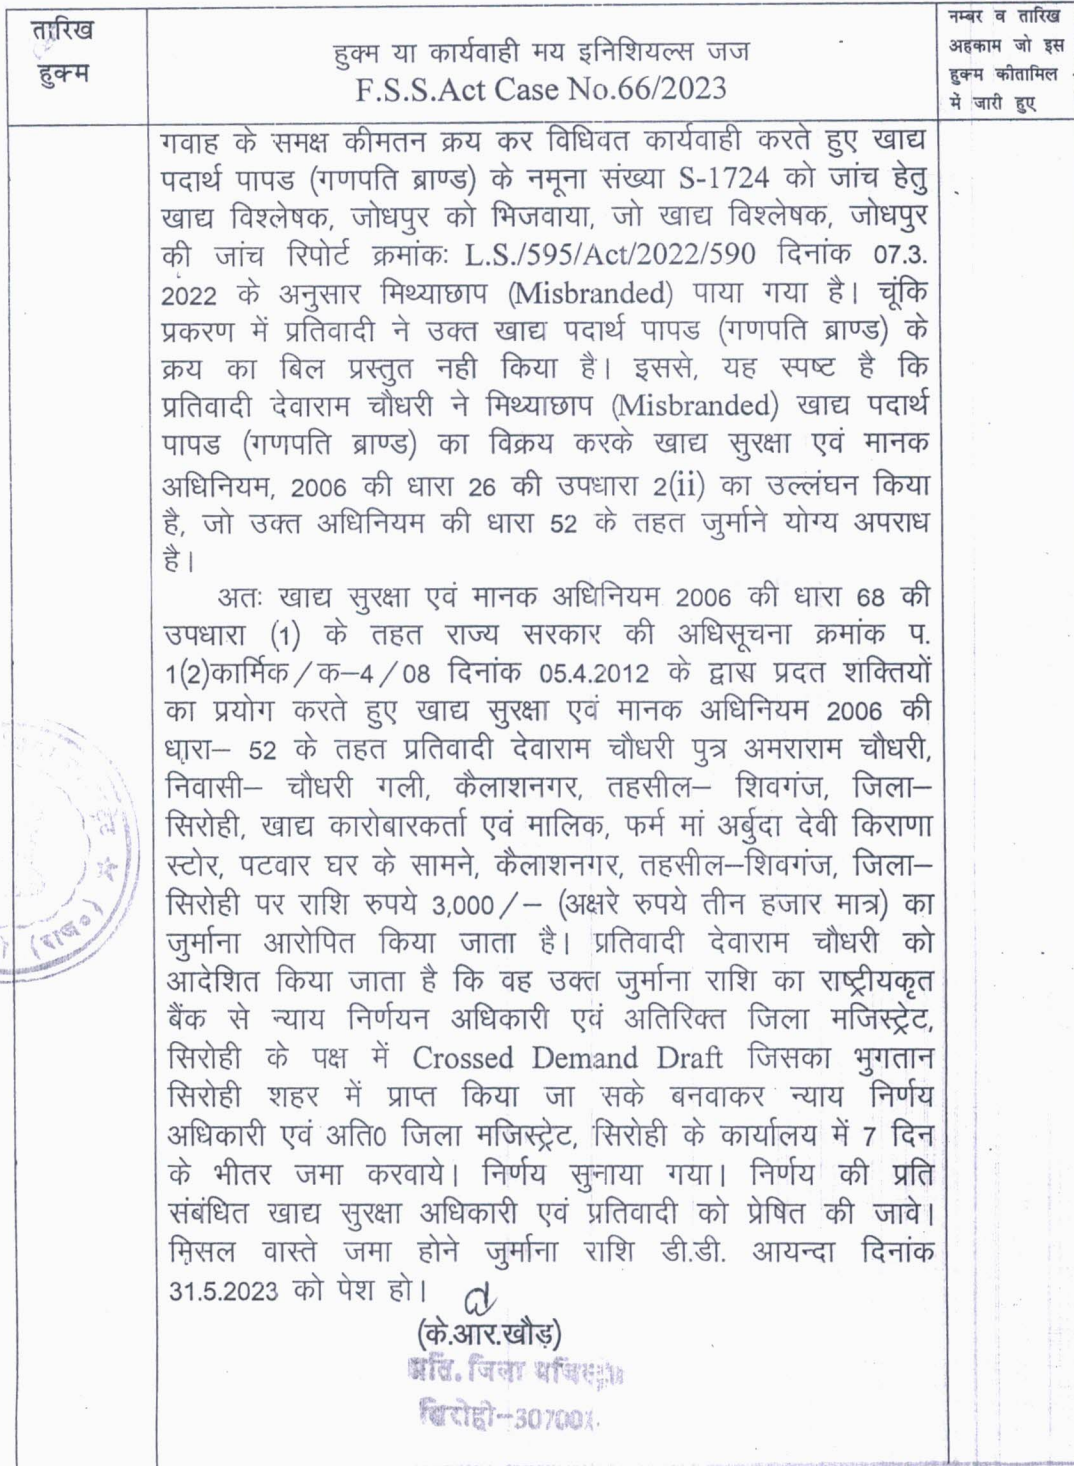 तारिख
हुक्म
हुक्म या कार्यवाही मय इनिशियल्स जज
F.S.S.Act Case No.66/2023
नम्बर व तारिख
अहकाम जो इस
हुक्म कीतामिल
में जारी हुए
गवाह के समक्ष कीमतन क्रय कर विधिवत कार्यवाही करते हुए खाद्य
पदार्थ पापड (गणपति ब्राण्ड) के नमूना संख्या S-1724 को जांच हेतु
खाद्य विश्लेषक, जोधपुर को भिजवाया, जो खाद्य विश्लेषक, जोधपुर
की जांच रिपोर्ट क्रमांकः L.S./595/Act/2022/590 दिनांक 07.3.
2022 के अनुसार मिथ्याछाप (Misbranded) पाया गया है। चूंकि
प्रकरण में प्रतिवादी ने उक्त खाद्य पदार्थ पापड (गणपति ब्राण्ड) के
क्रय का बिल प्रस्तुत नही किया है। इससे, यह स्पष्ट है कि
प्रतिवादी देवाराम चौधरी ने मिथ्याछाप (Misbranded) खाद्य पदार्थ
पापड (गणपति ब्राण्ड) का विक्रय करके खाद्य सुरक्षा एवं मानक
अधिनियम, 2006 की धारा 26 की उपधारा 2(ii) का उल्लंघन किया
है, जो उक्त अधिनियम की धारा 52 के तहत जुर्माने योग्य अपराध
है।
अतः खाद्य सुरक्षा एवं मानक अधिनियम 2006 की धारा 68 की
उपधारा (1) के तहत राज्य सरकार की अधिसूचना क्रमांक प.
1(2)कार्मिक/क–4/08 दिनांक 05.4.2012 के द्वारा प्रदत शक्तियों
का प्रयोग करते हुए खाद्य सुरक्षा एवं मानक अधिनियम 2006 की
धारा– 52 के तहत प्रतिवादी देवाराम चौधरी पुत्र अमराराम चौधरी,
निवासी– चौधरी गली, कैलाशनगर, तहसील– शिवगंज, जिला–
सिरोही, खाद्य कारोबारकर्ता एवं मालिक, फर्म मां अर्बुदा देवी किराणा
स्टोर, पटवार घर के सामने, कैलाशनगर, तहसील–शिवगंज, जिला–
सिरोही पर राशि रुपये 3,000/– (अक्षरे रुपये तीन हजार मात्र) का
जुर्माना आरोपित किया जाता है। प्रतिवादी देवाराम चौधरी को
आदेशित किया जाता है कि वह उक्त जुर्माना राशि का राष्ट्रीयकृत
बैंक से न्याय निर्णयन अधिकारी एवं अतिरिक्त जिला मजिस्ट्रेट,
सिरोही के पक्ष में Crossed Demand Draft जिसका भुगतान
सिरोही शहर में प्राप्त किया जा सके बनवाकर न्याय निर्णय
अधिकारी एवं अति0 जिला मजिस्ट्रेट, सिरोही के कार्यालय में 7 दिन
के भीतर जमा करवाये। निर्णय सुनाया गया। निर्णय की प्रति
संबंधित खाद्य सुरक्षा अधिकारी एवं प्रतिवादी को प्रेषित की जावे।
मिसल वास्ते जमा होने जुर्माना राशि डी.डी. आयन्दा दिनांक
31.5.2023 को पेश हो।
(के.आर.खौड़)
अति. जिला मजिस्ट्रेट
सिरोही–307001
(राज०)